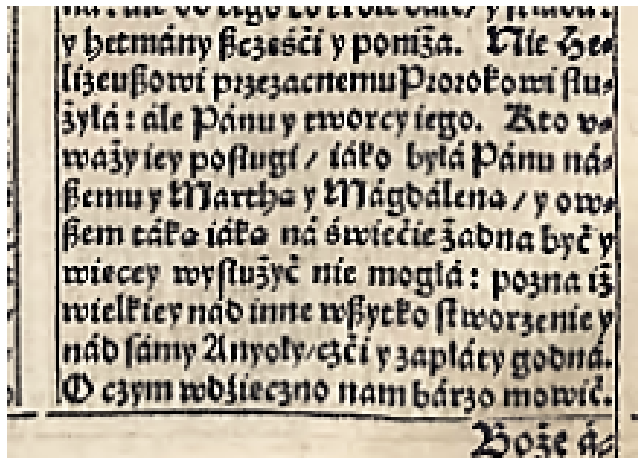 y hetmány ßczęśći y poniża. Nie He⸗
lizeußowi przezacnemu Prorokowi słu⸗
żyłá: ále Pánu y tworcy iego. Kto v⸗
waży iey posługi / iáko byłá Pánu ná⸗
ßemu y Márthá y Mágdáléná / y ow⸗
ßem táká iáka ná świećie żadna być y
więcey wysłużyć nie mogłá: pozna iż
wielkiey nád inne wßytko stworzenie y
nád sámy Anyoły/czći y zapłáty godná.
O czym wdzięczno nam bárzo mowić.
Boże á⸗